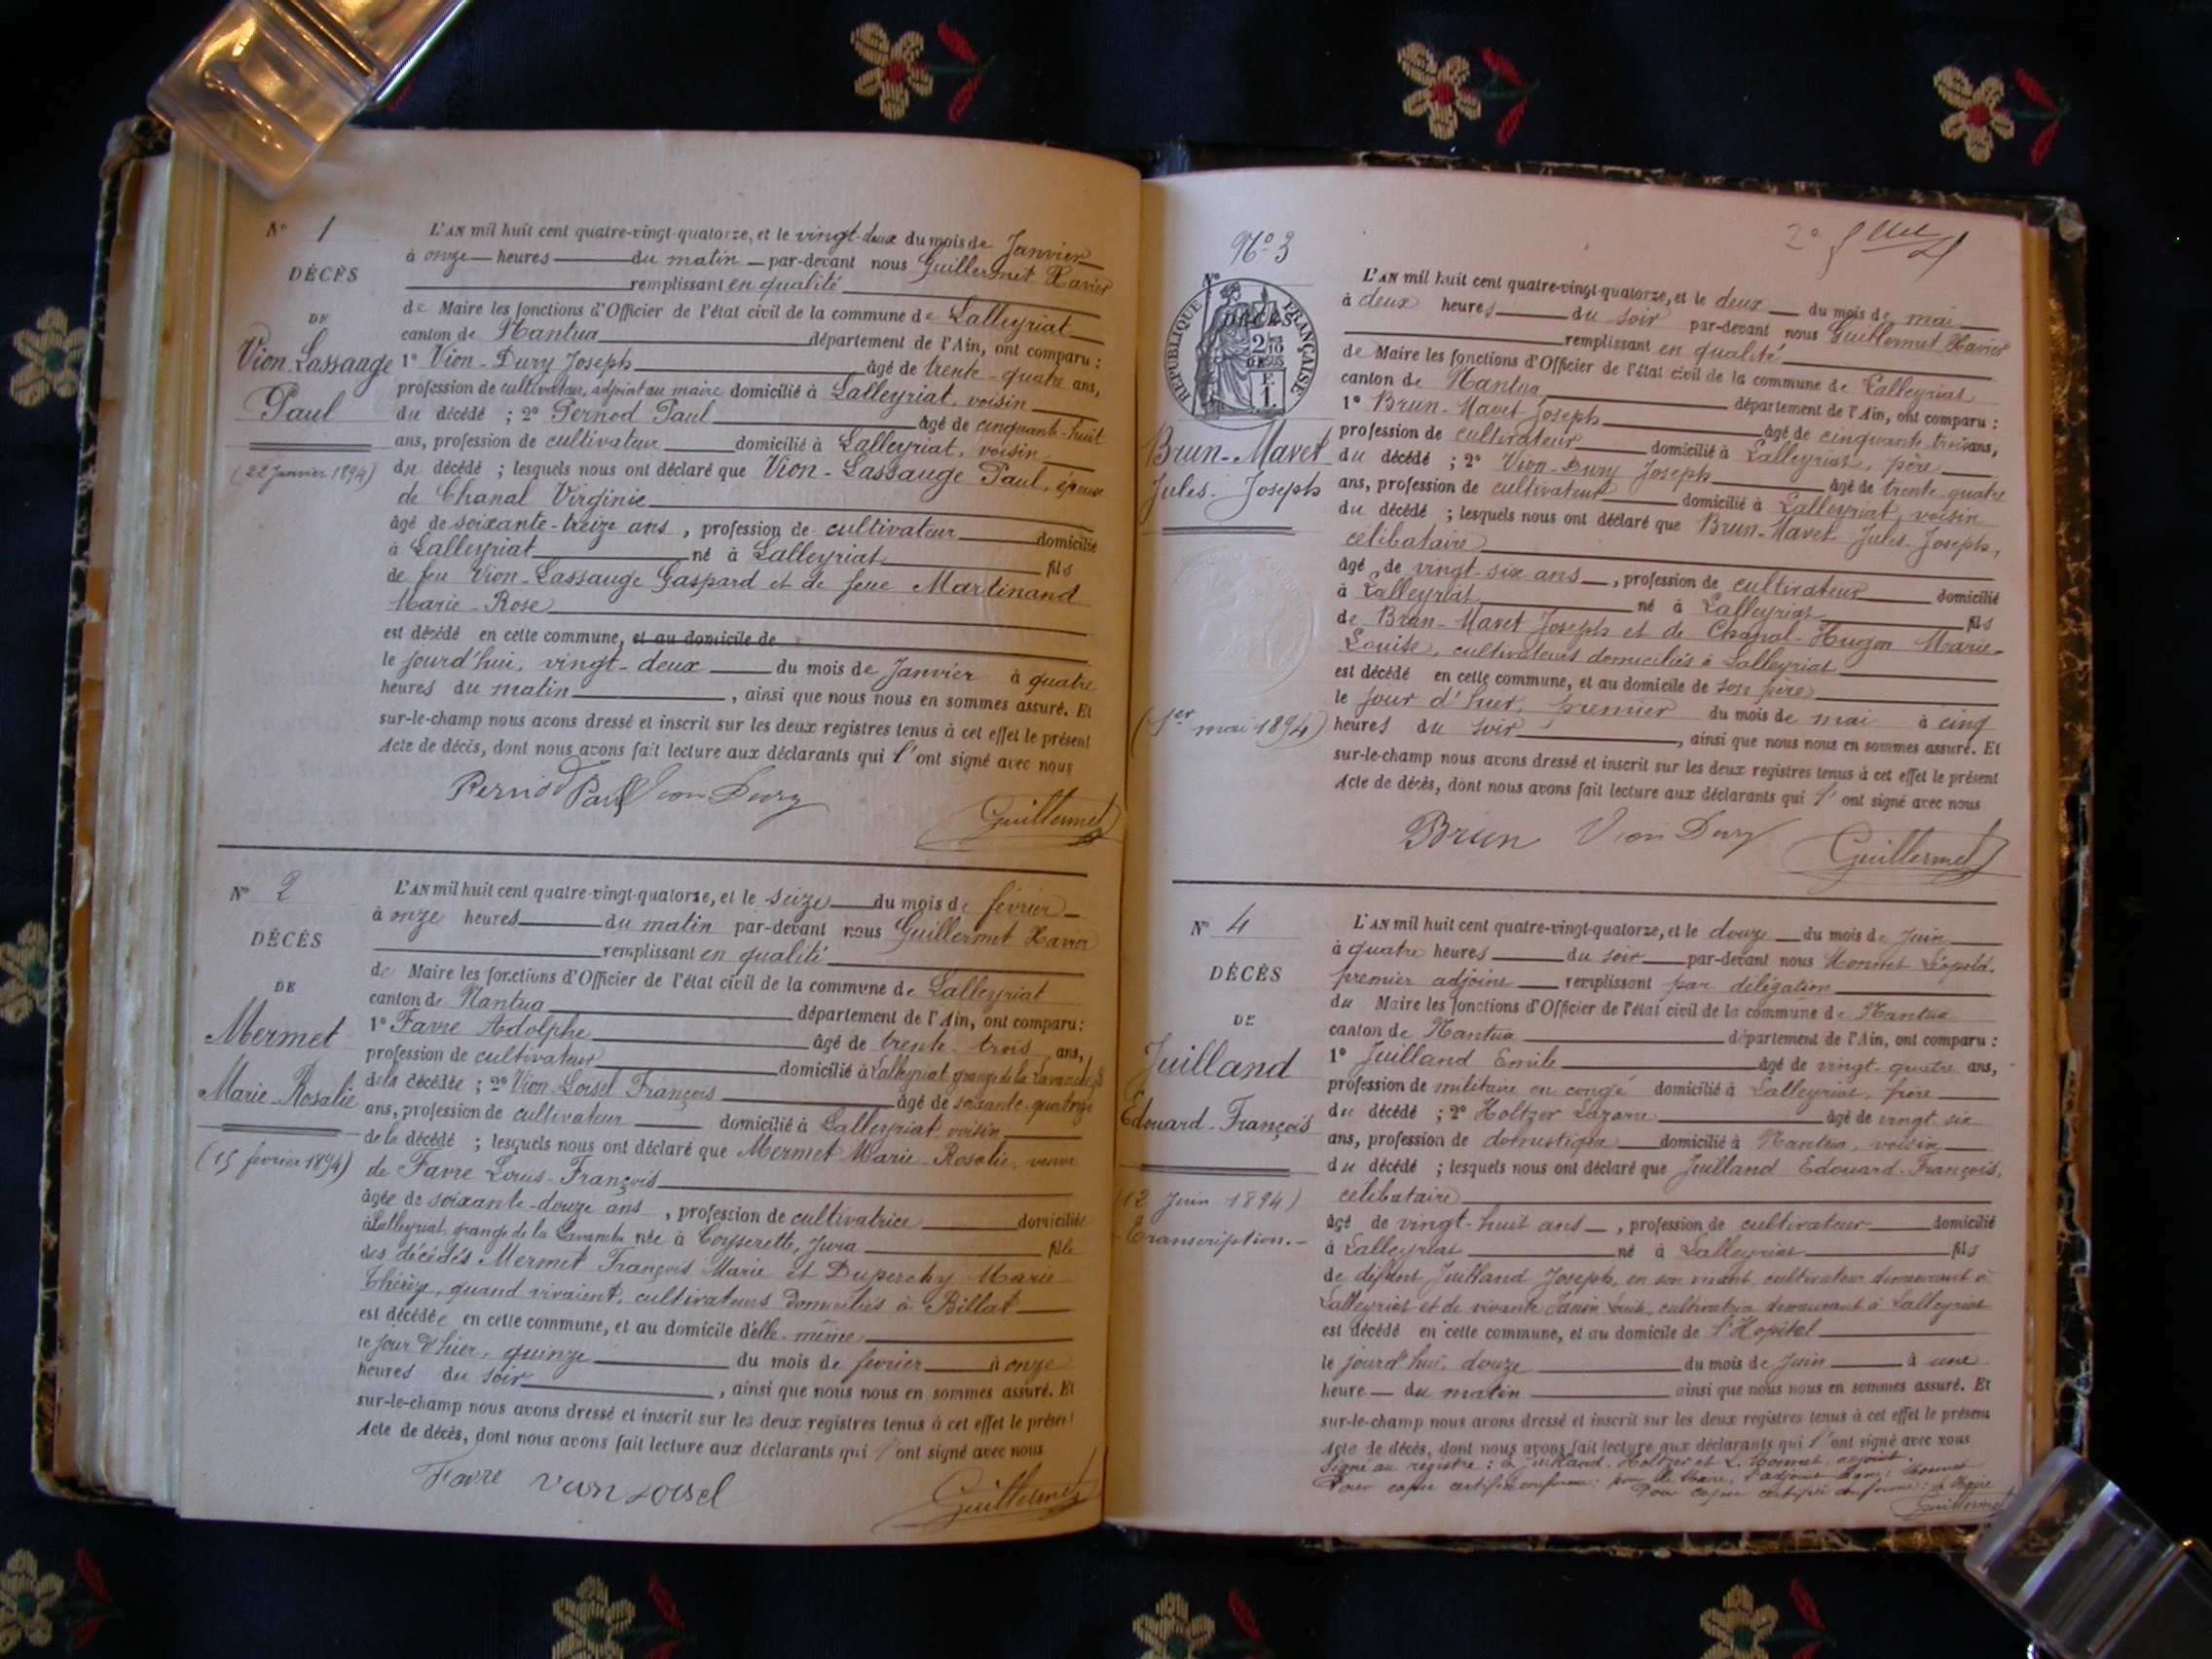 N° 1
DÉCÈS
DE
Vion-Lassauge
Paul
(22 Janvier 1894)
L'AN mil huit cent quatre-vingt-quatorze, et le vingt-deux du mois de Janvier
à onze heures du matin par-devant nous Guillermet Xavier
remplissant en qualité
de Maire les fonctions d'Officier de l'état civil de la commune de Lalleyriat
canton de Nantua département de l'Ain, ont comparu :
1° Vion-Dury Joseph âgé de trente-quatre ans,
profession de cultivateur, adjoint au maire domicilié à Lalleyriat, voisin
du décédé ; 2° Pernod Paul âgé de cinquante-huit
ans, profession de cultivateur domicilié à Lalleyriat, voisin
du décédé ; lesquels nous ont déclaré que Vion-Lassauge Paul, époux
de Chanal Virginie
âgé de soixante-treize ans, profession de cultivateur domicilié
à Lalleyriat né à Lalleyriat fils
de feu Vion-Lassauge Gaspard et de feue Martinand
Marie-Rose
est décédé en cette commune, et au domicile de
le jourd'hui, vingt-deux du mois de Janvier à quatre
heures du matin, ainsi que nous nous en sommes assuré. Et
sur-le-champ nous avons dressé et inscrit sur les deux registres tenus à cet effet le présent
Acte de décès, dont nous avons fait lecture aux déclarants qui l'ont signé avec nous
Pernod Paul Vion Dury
Guillermet
N° 2
DÉCÈS
DE
Mermet
Marie-Rosalie
(15 février 1894)
L'AN mil huit cent quatre-vingt-quatorze, et le seize du mois de février
à onze heures du matin par-devant nous Guillermet Xavier
remplissant en qualité
de Maire les fonctions d'Officier de l'état civil de la commune de Lalleyriat
canton de Nantua département de l'Ain, ont comparu :
1° Favre Adolphe âgé de trente-trois ans,
profession de cultivateur domicilié à Lalleyriat, grange de la
de la décédée ; 2° Vion-Loisel François âgé de soixante-quatorze
ans, profession de cultivateur domicilié à Lalleyriat, voisin
de la décédé ; lesquels nous ont déclaré que Mermet Marie-Rosalie, veuve
de Favre Louis-François
âgée de soixante-douze ans, profession de cultivatrice domiciliée
à Lalleyriat, grange de la née à Coyserette, Jura fille
des décédés Mermet François Marie et Duperchy Marie
quand vivaient, cultivateurs domiciliés à Billat
est décédée en cette commune, et au domicile d'elle-même
le jour d'hier, quinze du mois de février à onze
heures du soir, ainsi que nous nous en sommes assuré. Et
sur-le-champ nous avons dressé et inscrit sur les deux registres tenus à cet effet le présent
Acte de décès, dont nous avons fait lecture aux déclarants qui l'ont signé avec nous
Favre Vion Loisel
Guillermet
2°
N° 3
N°
DÉCÈS
RÉPUBLIQUE FRANÇAISE
2 10
EN SUS
F.
1.
Brun-Mavet
Jules-Joseph
(1er mai 1894)
L'AN mil huit cent quatre-vingt-quatorze, et le deux du mois de mai
à deux heures du soir par-devant nous Guillermet Xavier
remplissant en qualité
de Maire les fonctions d'Officier de l'état civil de la commune de Lalleyriat
canton de Nantua département de l'Ain, ont comparu :
1° Brun-Mavet Joseph âgé de cinquante-trois ans,
profession de cultivateur domicilié à Lalleyriat, père
du décédé ; 2° Vion-Dury Joseph âgé de trente-quatre
ans, profession de cultivateur domicilié à Lalleyriat, voisin
du décédé ; lesquels nous ont déclaré que Brun-Mavet Jules-Joseph,
célibataire
âgé de vingt-six ans, profession de cultivateur domicilié
à Lalleyriat né à Lalleyriat fils
de Brun-Mavet Joseph et de Chanal-Hugon Marie-
Louise, cultivateurs domiciliés à Lalleyriat
est décédé en cette commune, et au domicile de son père
le jour d'hier, premier du mois de mai à cinq
heures du soir, ainsi que nous nous en sommes assuré. Et
sur-le-champ nous avons dressé et inscrit sur les deux registres tenus à cet effet le présent
Acte de décès, dont nous avons fait lecture aux déclarants qui l'ont signé avec nous
Brun Vion Dury
Guillermet
N° 4
DÉCÈS
DE
Juilland
Edouard-François
(12 Juin 1894)
-Transcription.-
L'AN mil huit cent quatre-vingt-quatorze, et le douze du mois de Juin
à quatre heures du soir par-devant nous Monnet Léopold,
premier adjoint remplissant par délégation
du Maire les fonctions d'Officier de l'état civil de la commune de Nantua
canton de Nantua département de l'Ain, ont comparu :
1° Juilland Emile âgé de vingt-quatre ans,
profession de militaire en congé domicilié à Lalleyriat, frère
du décédé ; 2° Holtzer Lazare âgé de vingt six
ans, profession de domestique domicilié à Nantua, voisin
du décédé ; lesquels nous ont déclaré que Juilland Edouard-François,
célibataire
âgé de vingt-huit ans, profession de cultivateur domicilié
à Lalleyriat né à Lalleyriat fils
de défunt Juilland Joseph, en son vivant cultivateur demeurant à
Lalleyriat et de vivante Janin cultivatrice demeurant à Lalleyriat
est décédé en cette commune, et au domicile de l'Hopital
le jourd'hui, douze du mois de Juin à une
heure du matin ainsi que nous nous en sommes assuré. Et
sur-le-champ nous avons dressé et inscrit sur les deux registres tenus à cet effet le présent
Acte de décès, dont nous avons fait lecture aux déclarants qui l'ont signé avec nous
Signé au registre : E. Juilland, Holtzer et L. Monnet, adjoint.
Pour copie certifiée conforme : pour le Maire, l'adjoint signé : Monnet
Pour copie certifiée conforme : le Maire
Guillermet